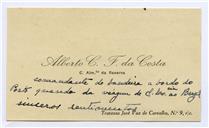 Alberto C. F. da Costa
C. Alm.te da Reserva
comandante da bandeira a bordo do
guando da viagem de S. Ex.cia ao
sinceros sentimentos
Travessa José Vaz de Carvalho, N.º 9, r/c.